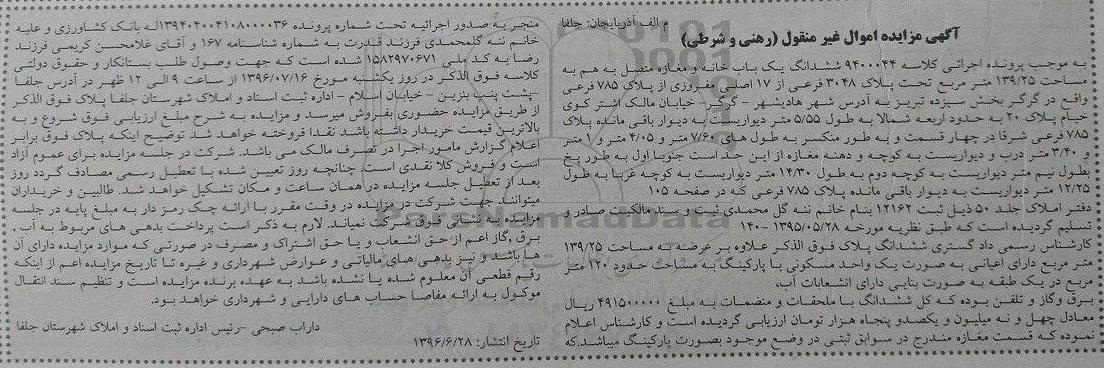 م الف آذربایجان: جلفا
آگهی مزایده اموال غیر منقول (رهنی و شرطی)
به موجب پرونده اجرائی کلاسه ۹۴۰۰۰۴۴ ششدانگ یک باب خانه و مغازه متصل به هم به
مساحت ۱۳۹/۲۵ متر مربع تحت پلاک ۳۰۴۸ فرعی از ۱۷ اصلی مفروزی از پلاک ۷۸۵ فرعی
واقع در گرگر بخش سیزده تبریز به آدرس شهر هادیشهر - گرگر - خیابان مالک اشتر کوی
خیام پلاک ۲۰ به حدود اربعه شمالا به طول ۵/۵۵ متر دیواریست به دیوار باقی مانده پلاک
۷۸۵ فرعی شرقا در چهار قسمت و به طور منکسر به طول های ۷/۶۰ متر و ۴/۰۵ متر و ۱ متر
و ۳/۴۰ متر درب و دیواریست به کوچه و دهنه مغازه از این حد است جنوبا اول به طور پخ
بطول نیم متر دیواریست به کوچه دوم به طول ۱۴/۳۰ متر دیواریست به کوچه غربا به طول
۱۲/۲۵ متر دیواریست به دیوار باقی مانده پلاک ۷۸۵ فرعی که در صفحه ۱۰۵
دفتر املاک جلد ۵۰ ذیل ثبت ۱۲۱۶۲ بنام خانم ننه گل محمدی ثبت و سند مالکیت صادر و
تسلیم گردیده است که طبق نظریه مورخه ۱۳۹۵/۰۵/۲۸ -۱۴۰
کارشناس رسمی داد گستری ششدانگ پلاک فوق الذکر علاوه بر عرضه به مساحت ۱۳۹/۲۵
متر مربع دارای اعیانی به صورت یک واحد مسکونی با پارکینگ به مساحت حدود ۱۲۰ متر
مربع در یک طبقه به صورت بنایی دارای انشعابات آب،
برق وگاز و تلفن بوده که کل ششدانگ با ملحقات و منضمات به مبلغ ۴۹۱۵۰۰۰۰۰ ریال
معادل چهل و نه میلیون و یکصدو پنجاه هزار تومان ارزیابی گردیده است و کارشناس اعلام
نموده که قسمت مغازه مندرج در سوابق ثبتی در وضع موجود بصورت پارکینگ میباشد.که
منجر به صدور اجرائیه تحت شماره پرونده ۱۳۹۴۰۴۰۰۴۱۰۸۰۰۰۰۳۶له بانک کشاورزی و علیه
خانم ننه گلمحمدی فرزند قدرت به شماره شناسنامه ۱۶۷ و آقای غلامحسن کریمی فرزند
رضا به کد ملی ۱۵۸۲۹۷۰۶۷۱ شده است که جهت وصول طلب بستانکار و حقوق دولتی
کلاسه فوق الذکر در روز یکشنبه مورخ ۱۳۹۶/۰۷/۱۶ از ساعت ۹ الی ۱۲ ظهر در آدرس جلفا
-پشت پنپ بنزین - خیابان اسلام - اداره ثبت اسناد و املاک شهرستان جلفا پلاک فوق الذکر
از طریق مزایده حضوری بفروش میرسد و مزایده به شرح مبلغ ارزیابی فوق شروع و به
بالاترین قیمت خریدار داشته باشد نقدا فروخته خواهد شد توضیح اینکه پلاک فوق برابر
اعلام گزارش مامور اجرا در تصرف مالک می باشد. شرکت در جلسه مزایده برای عموم آزاد
است و فروش کلا نقدی است. چنانچه روز تعیین شده با تعطیل رسمی مصادف گردد روز
بعد از تعطیل جلسه مزایده در همان ساعت و مکان تشکیل خواهد شد. طالبین و خریداران
میتوانند جهت شرکت در مزایده در وقت مقرر با ارائه چک رمز دار به مبلغ پایه در جلسه
مزایده به نشانی فوق شرکت نمایند. لازم به ذکر است پرداخت بدهی های مربوط به آب ،
برق ,گاز اعم از حق انشعاب و یا حق اشتراک و مصرف در صورتی که موارد مزایده دارای آن
ها باشد و نیز بدهی های مالیاتی و عوارض شهرداری و غیره تا تاریخ مزایده اعم از اینکه
رقم قطعی آن معلوم شده یا نشده باشد به عهده برنده مزایده است و تنظیم سند انتقال
موکول به ارائه مفاصا حساب های دارایی و شهرداری خواهد بود.
داراب صبحی -رئیس اداره ثبت اسناد و املاک شهرستان جلفا
تاریخ انتشار: ۱۳۹۶/۶/۲۸
ParsNamadData